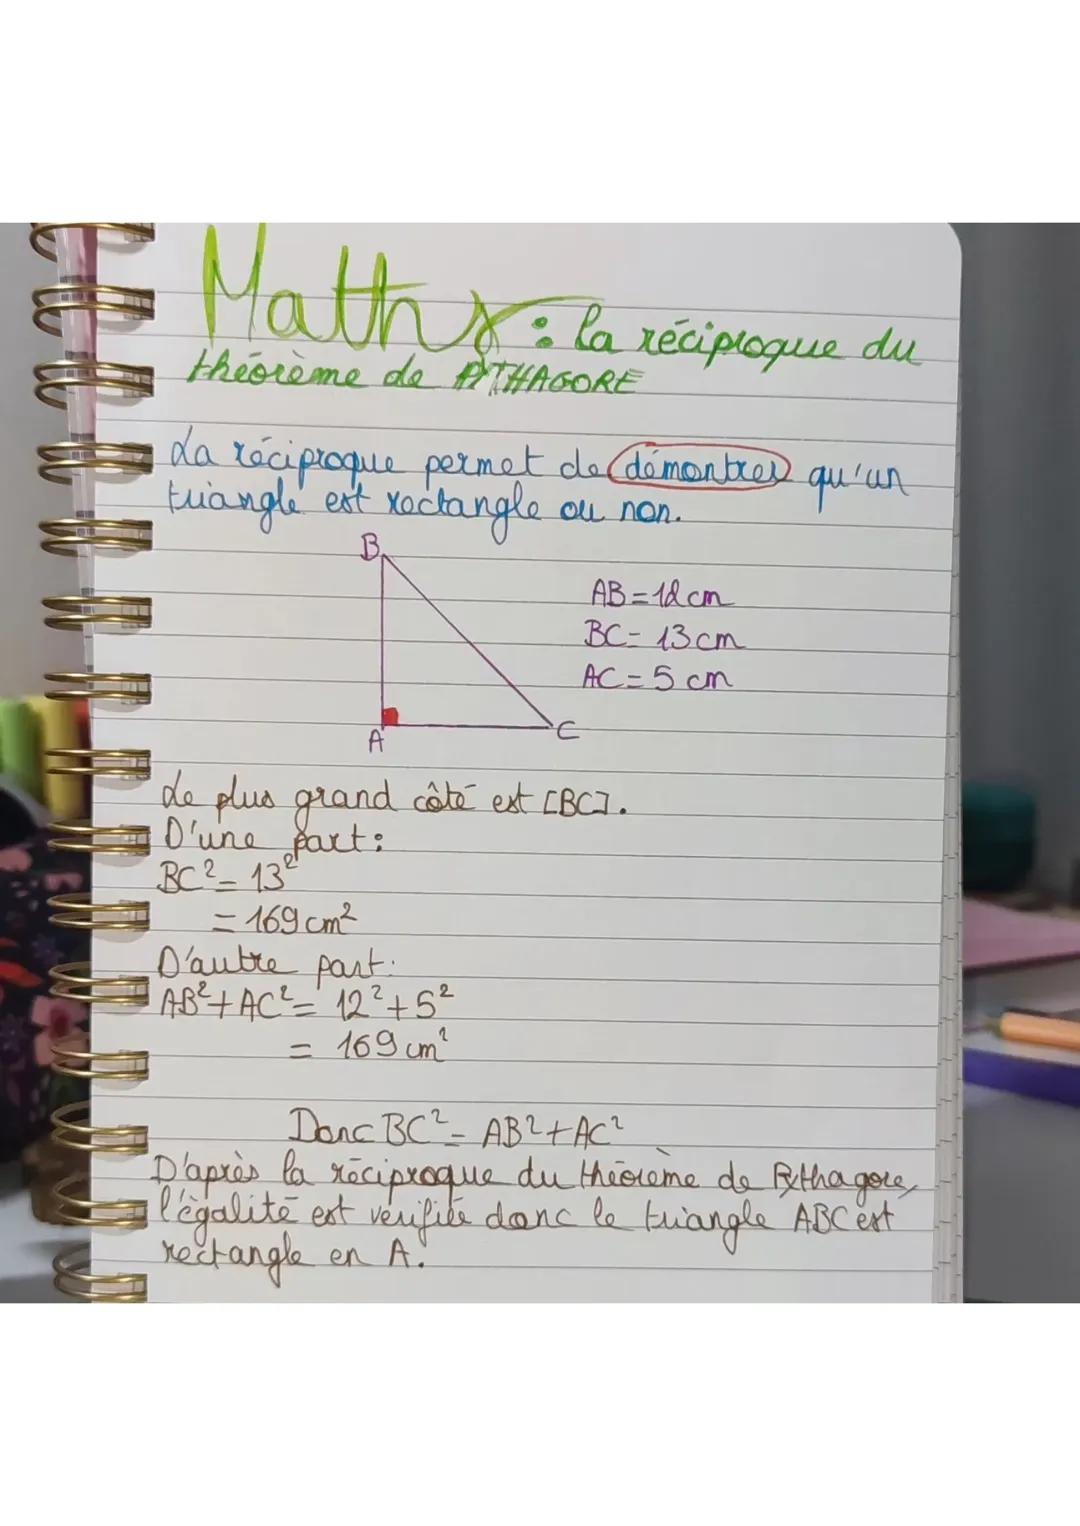 Maths : la réciproque du
théorème de PYTHAGORE
La réciproque permet de démontrer qu'un
triangle est rectangle ou non.
B
AB=12cm
BC= 13cm
AC=5 cm
A
C
Le plus grand côté est [BC].
D'une part:
BC²= 13²
= 169cm²
D'autre part:
AB²+AC²= 12²+5²
= 169cm²
Donc BC²= AB²+AC²
D'après la réciproque du théorème de Pythagore,
l'égalité est verifiée donc le triangle ABC est
rectangle en A.